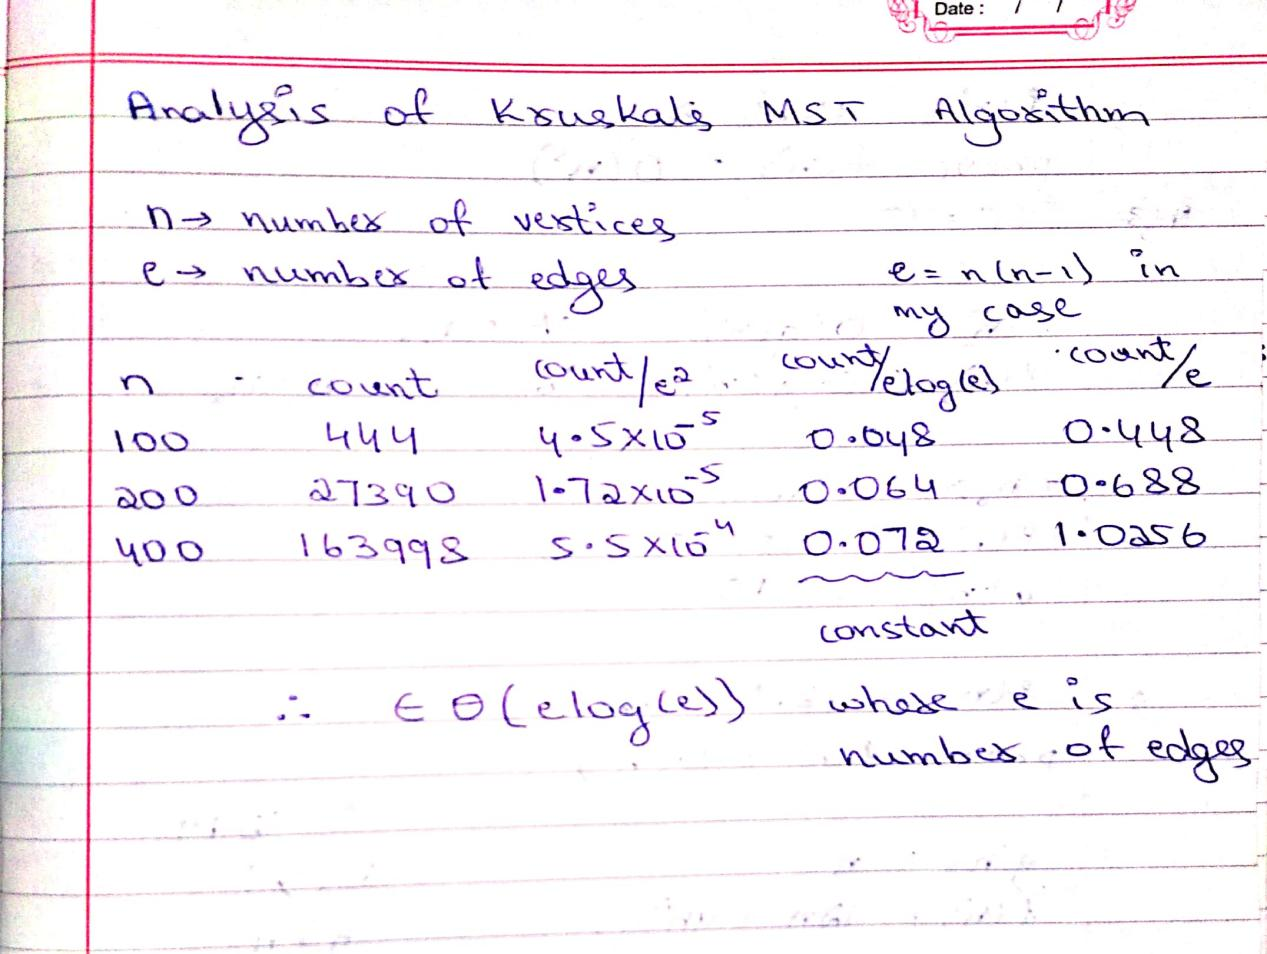 Date : / /
Analysis of Kruskal's MST Algorithm
n → number of vertices
e → number of edges e = n(n-1) in
my case
n count count/e² count/elog(e) count/e
100 444 4.5×10⁻⁵ 0.048 0.448
200 27390 1.72×10⁻⁵ 0.064 0.688
400 163998 5.5×10⁻⁴ 0.072 1.0256
constant
∴ ∈ Θ(elog(e)) where e is
number of edges